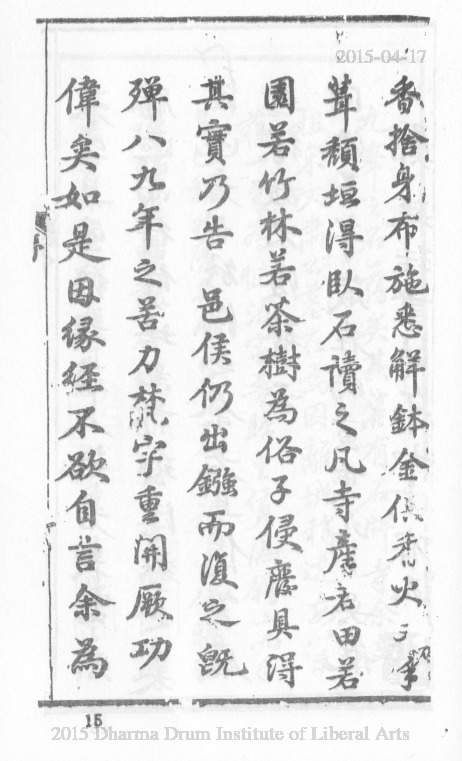 2015-04-17
香捨身布施悉解鉢金供香火
葺頹垣得臥石讀之凡寺産若田若
園若竹林若茶樹為俗子侵廢具得
其實乃告 邑侯仍出鏹而復之既
殫八九年之苦力梵宇重開厥功
偉矣如是因緣經不欲自言余為
序
15
2015 Dharma Drum Institute of Liberal Arts